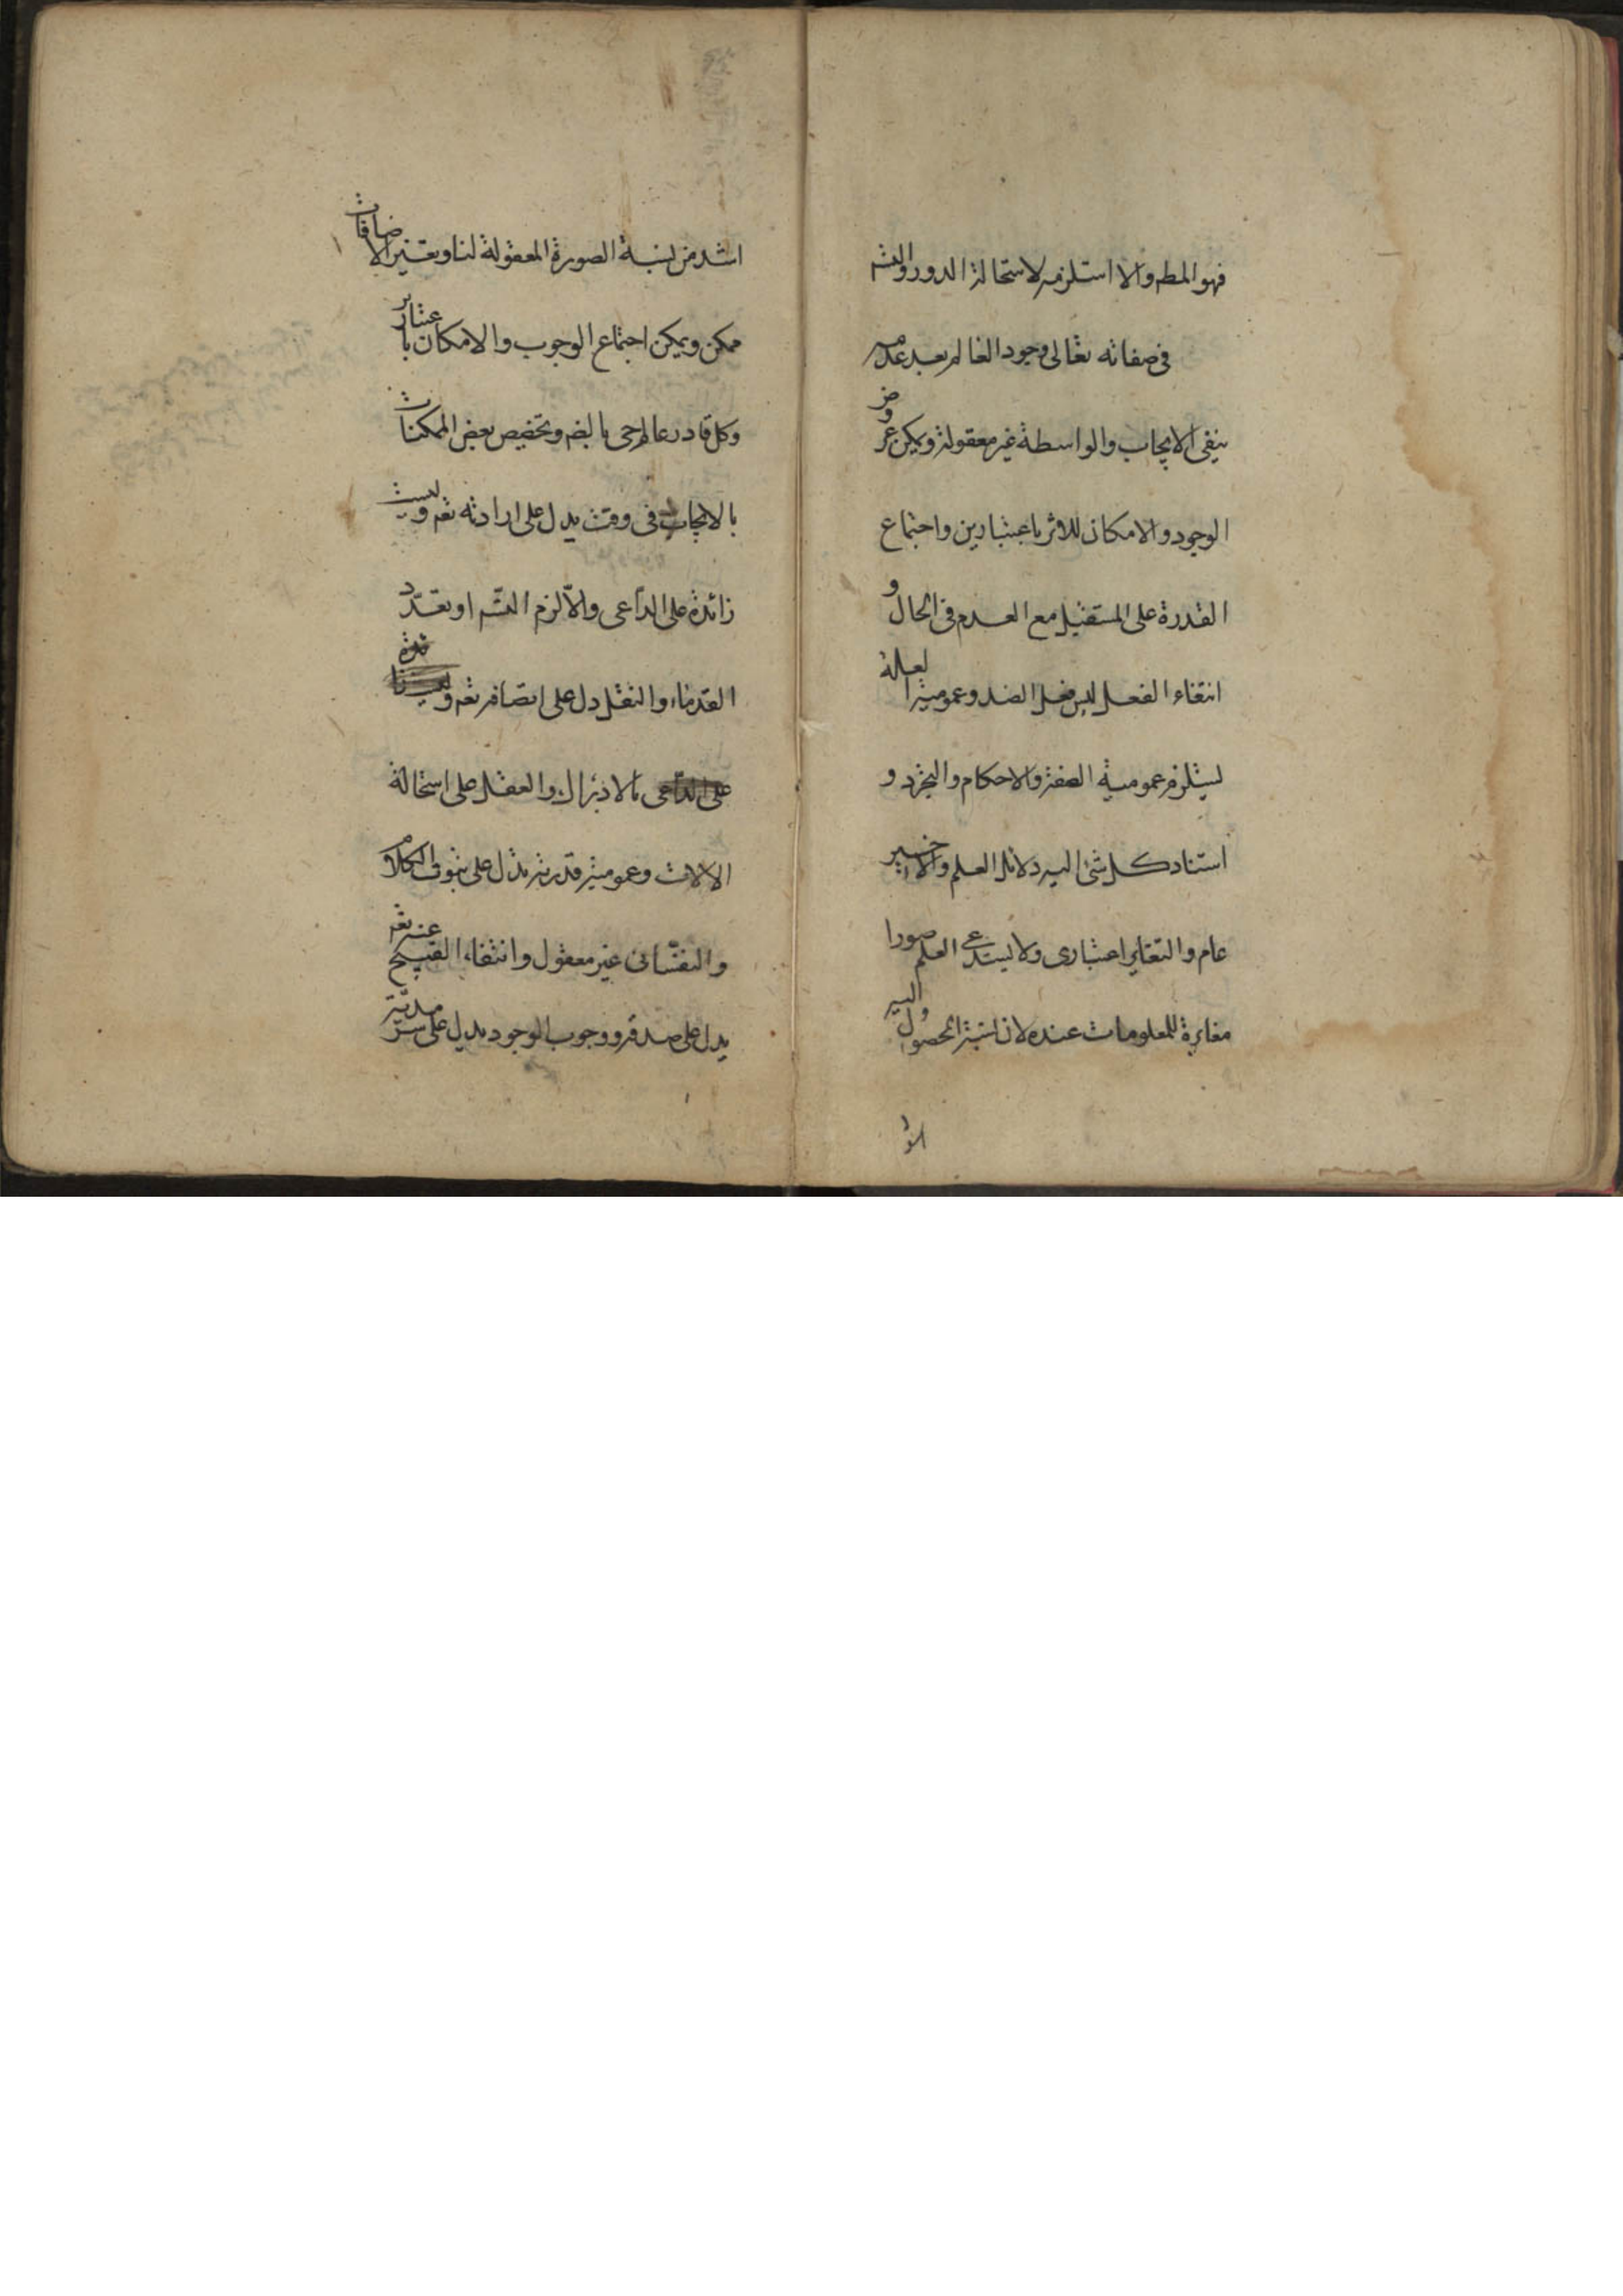 فهو المط والا استلزمه لاستحالة الدور والتس
فى صفاته تعالى وجود العالم بعد عدمه
ينفى الايجاب والواسطة غير معقولة ويمكن عروض
الوجود والامكان للاثر باعتبارين واجتماع
القدرة على المستقبل مع العدم فى الحال و
انتفاء الفعل ليس فعل الضد وعمومية العلة
ليستلزم عمومية الصفة والاحكام والتجرد و
استناد كل شئ اليه دلائل العلم والاخير
عام والتغاير اعتبارى ولا يستدعى العلم صورا
مغايرة للمعلومات عنده لان نسبة الحصول اليه
اشد من نسبة الصورة المعقولة لنا وتغير الاضافات
ممكن ويمكن اجتماع الوجوب والامكان باعتبار
وكل قادر عالم حى بالضم وتخصيص بعض الممكنات
بالايجاب فى وقت يدل على ارادته تعم وليست
زائدة على الداعى والّا لزم التسّم او تعدّد
القدماء والنقل دل على اتصافه تعم و
بالادراك والعقل على استحالة
الالات وعمومية قدرته تدل على ثبوت الكلام
والنفسانى غير معقول وانتفاء القبيح عنه تعم
يدل على صدقه ووجوب الوجود يدل على سرمديّته